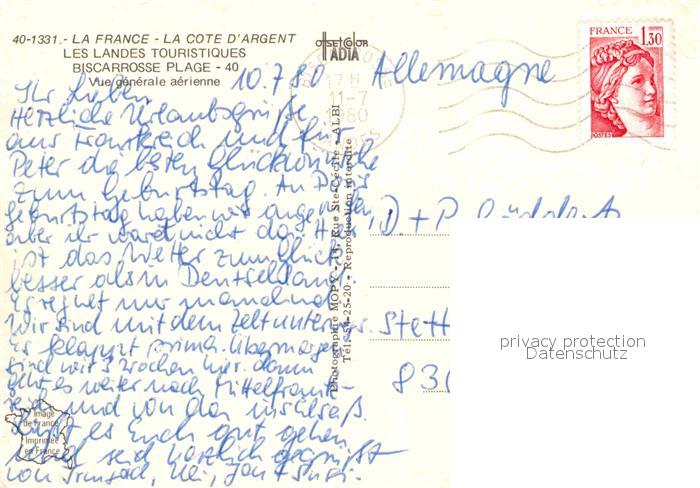 40-1331.- LA FRANCE - LA COTE D'ARGENT
LES LANDES TOURISTIQUES
BISCARROSSE PLAGE - 40
Vue générale aérienne
offset color
ADIA
FRANCE
1,30
POSTES
17 H
11-7
1980
LANDES
10.7.80
Allemagne
Ihr Lieben
Herzliche Urlaubsgrüße
aus Frankreich und für
Peter die besten Glückwünsche
zum Geburtstag. An
Geburtstag haben wir angerufen,
aber ihr wart nicht da. Hier
ist das Wetter zum Glück
besser als in Deutschland.
Es regnet nur manchmal
Wir sind mit dem Zelt unterwegs.
Es klappt prima. Übermorgen
sind wir 3 Wochen hier. dann
geht es weiter nach Mittelfrank-
reich und von da ins Elsaß.
Laßt es Euch gut gehen
und seid herzlich gegrüßt
von Irmgard, Jan + Susi.
D. + P.
Stett
830
Photographie MOPY - 43, Rue Ste-Cécile - ALBI
Tél. 54-25-20 - Reproduction interdite
Image
de France
Imprimée
en France
privacy protection
Datenschutz